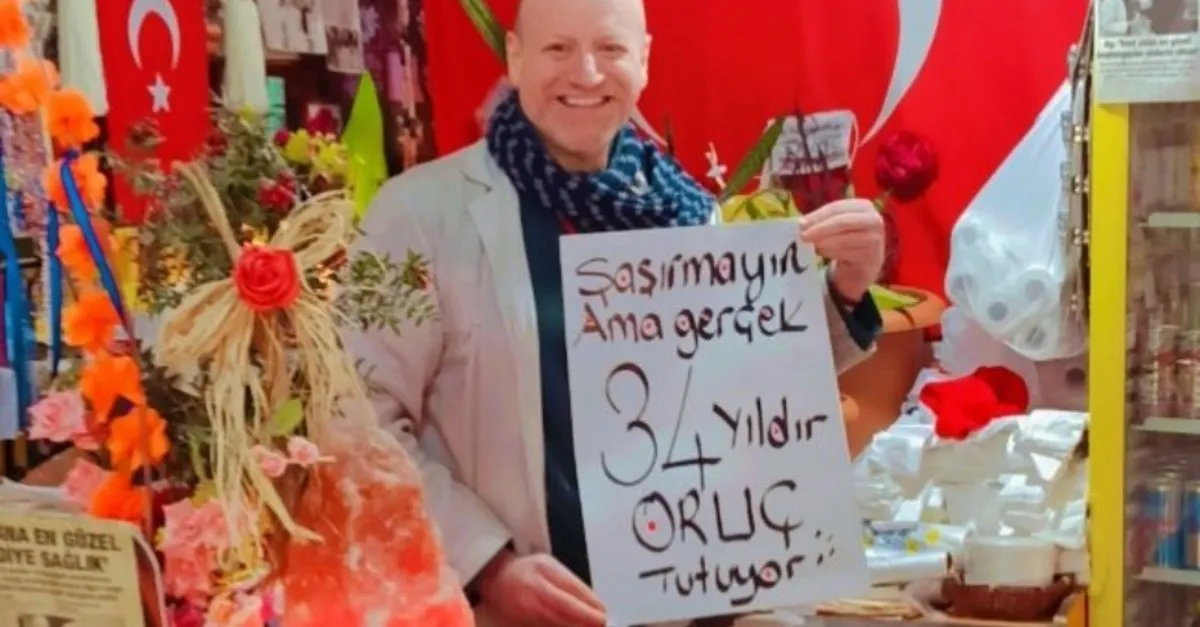 Şaşırmayın
Ama gerçek
34 yıldır
ORUÇ
Tutuyor
EN GÜZEL
DİYE SAĞLIK"